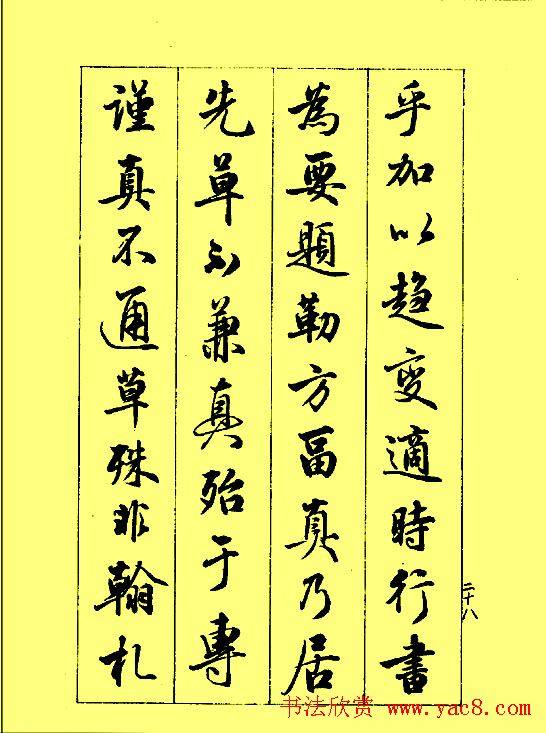 乎加以趋變適時行書
為要題勒方畐真乃居
先草不兼真殆于專
謹真不通草殊非翰札
二十八
书法欣赏 www.yac8.com